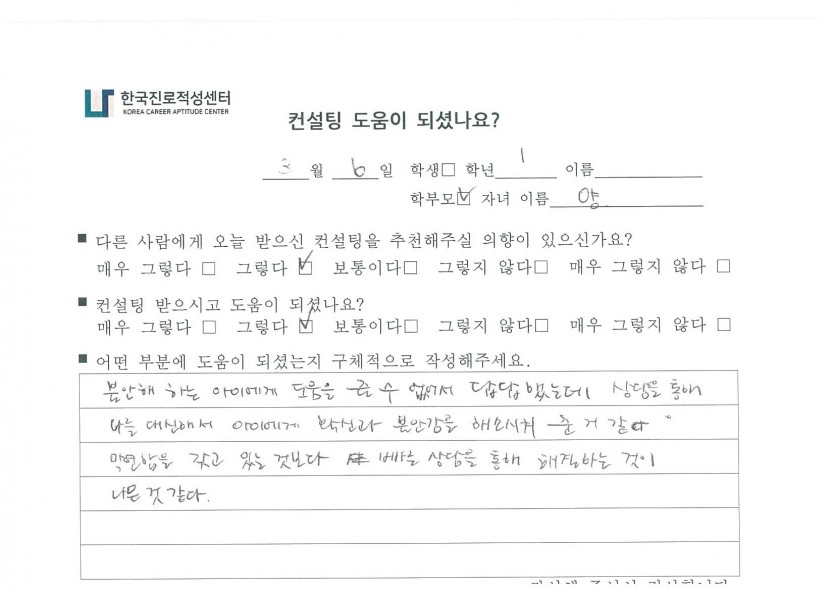 한국진로적성센터
KOREA CAREER APTITUDE CENTER
컨설팅 도움이 되셨나요?
3 월 6 일 학생□ 학년 1 이름
학부모☑ 자녀 이름 양
■ 다른 사람에게 오늘 받으신 컨설팅을 추천해주실 의향이 있으신가요?
매우 그렇다 □ 그렇다 ☑ 보통이다□ 그렇지 않다□ 매우 그렇지 않다 □
■ 컨설팅 받으시고 도움이 되셨나요?
매우 그렇다 □ 그렇다 ☑ 보통이다□ 그렇지 않다□ 매우 그렇지 않다 □
■ 어떤 부분에 도움이 되셨는지 구체적으로 작성해주세요.
불안해 하는 아이에게 도움을 줄 수 없어서 답답했는데 상담을 통해
나를 대신해서 아이에게 확신과 불안감을 해소시켜 준 거 같다.
막연함을 갖고 있는 것보다 빠른 상담을 통해 해결하는 것이
나은 것 같다.